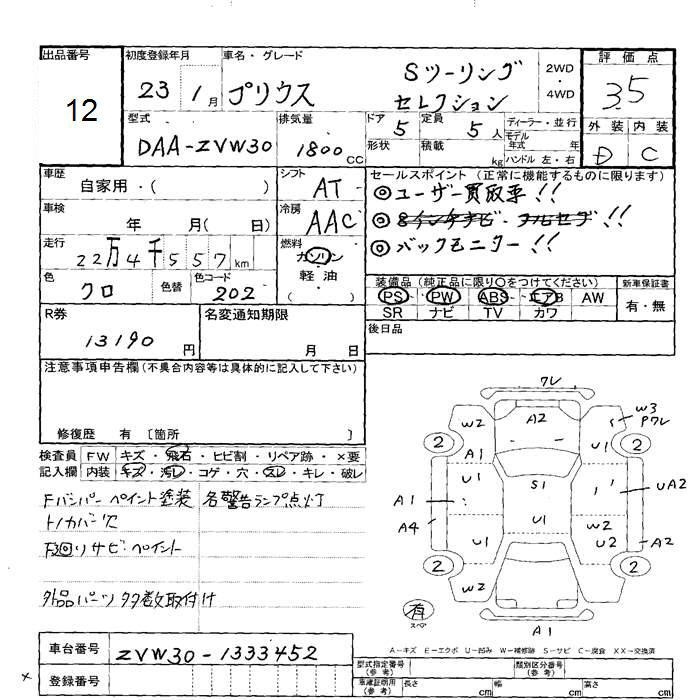 出品番号 初度登録年月 車名・グレード 評価点
12 23 1月 プリウス Sツーリング 2WD・4WD 3.5
セレクション
型式 排気量 ドア 5 定員 5人 ディーラー・並行 外装 内装
DAA-ZVW30 1800CC 形状 積載 kg モデル年式 年 D C
ハンドル 左・右
車歴 シフト セールスポイント (正常に機能するものに限ります)
自家用・( ) AT ◎ユーザー買取車!!
車検 冷房 ◎8インチナビ・フルセグ!!
年 月( 日) AAC ◎バックモニター!!
走行 燃料
22万4千557km ガソリン
色 色替 色コード 軽油 装備品 (純正品に限り○をつけてください) 新車保証書
クロ 202 ( ) PS PW ABS エアB AW 有・無
SR ナビ TV カワ
R券 名変通知期限 後日品
13190円 月 日
注意事項申告欄(不具合内容等は具体的に記入して下さい)
修復歴 有 〔箇所 〕
検査員 FW キズ・飛石・ヒビ割・リペア跡・×要
記入欄 内装 キズ・汚レ・コゲ・穴・スレ・キレ・破レ
Fバンパーペイント塗装 各警告ランプ点灯
トノカバー欠
下廻りサビ・ペイント
外品パーツ多数取付け
ワレ
W2 A2 W3
Pワレ
2 A1 U1 2
U1 S1 UA2
A1
A4 U1 U1 W2
U2 A2
2 W2 2
有
スペア A1
A-キズ E-エクボ U-凹み W-補修跡 S-サビ C-腐食 XX-交換済
車台番号 ZVW30-1333452
登録番号
型式指定番号(参考) 類別区分番号(参考)
車庫証明用(参考) 長さ cm 幅 cm 高さ cm
×